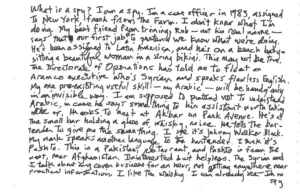 What is a spy? I am a spy. I'm a case officer in 1983, assigned
to New York, fresh from the Farm. I don't know what I'm
doing. My best friend from training Rob - not his real name -
says that our first job is graduate we know what we're doing.
He's been assigned to Latin America, and he's on a beach being
sitting a beautiful woman in a string bikini. This may not be true.
The Directorate of Operations has told me to float an
Aramco executive who's Syrian and speaks flawless English.
My one pre-existing useful skill - my Arabic - will be handy only
in an invisible way: I am supposed to pretend not to understand
Arabic, in case he says something to him assistant
or, thanks to meet at Akbar on Park Avenue. He's at
the small bar holding a glass of whisky, neat. He tells the bar-
tender to give me the same thing. I see it's Johnny Walker Black.
My mark speaks another language to the bartender. I think it's
Pashto. This is a Pakistani restaurant, and Pashto is from the
west, near Afghanistan. I'm interested but helpless. The Syrian and
I talk about my cover business for an hour, not getting anywhere near
practical information. I like the whisky. I can already see I'm